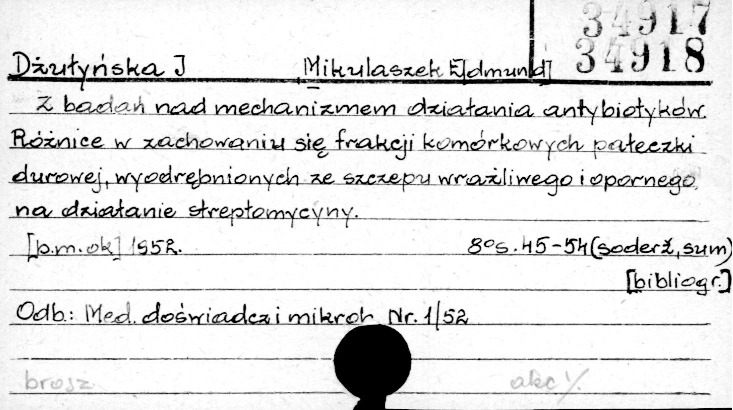 34917
34918
Dżułyńska J Mikulaszek E[dmund]
Z badań nad mechanizmem działania antybiotyków.
Różnice w zachowaniu się frakcji komórkowych pałeczki
durowej, wyodrębnionych ze szczepu wrażliwego i opornego
na działanie streptomycyny.
[b.m.ok] 1952. 8° s. 45-54 (soderż, sum)
[bibliogr.]
Odb.: Med. doświadcz i mikrob Nr. 1/52
brosz akc